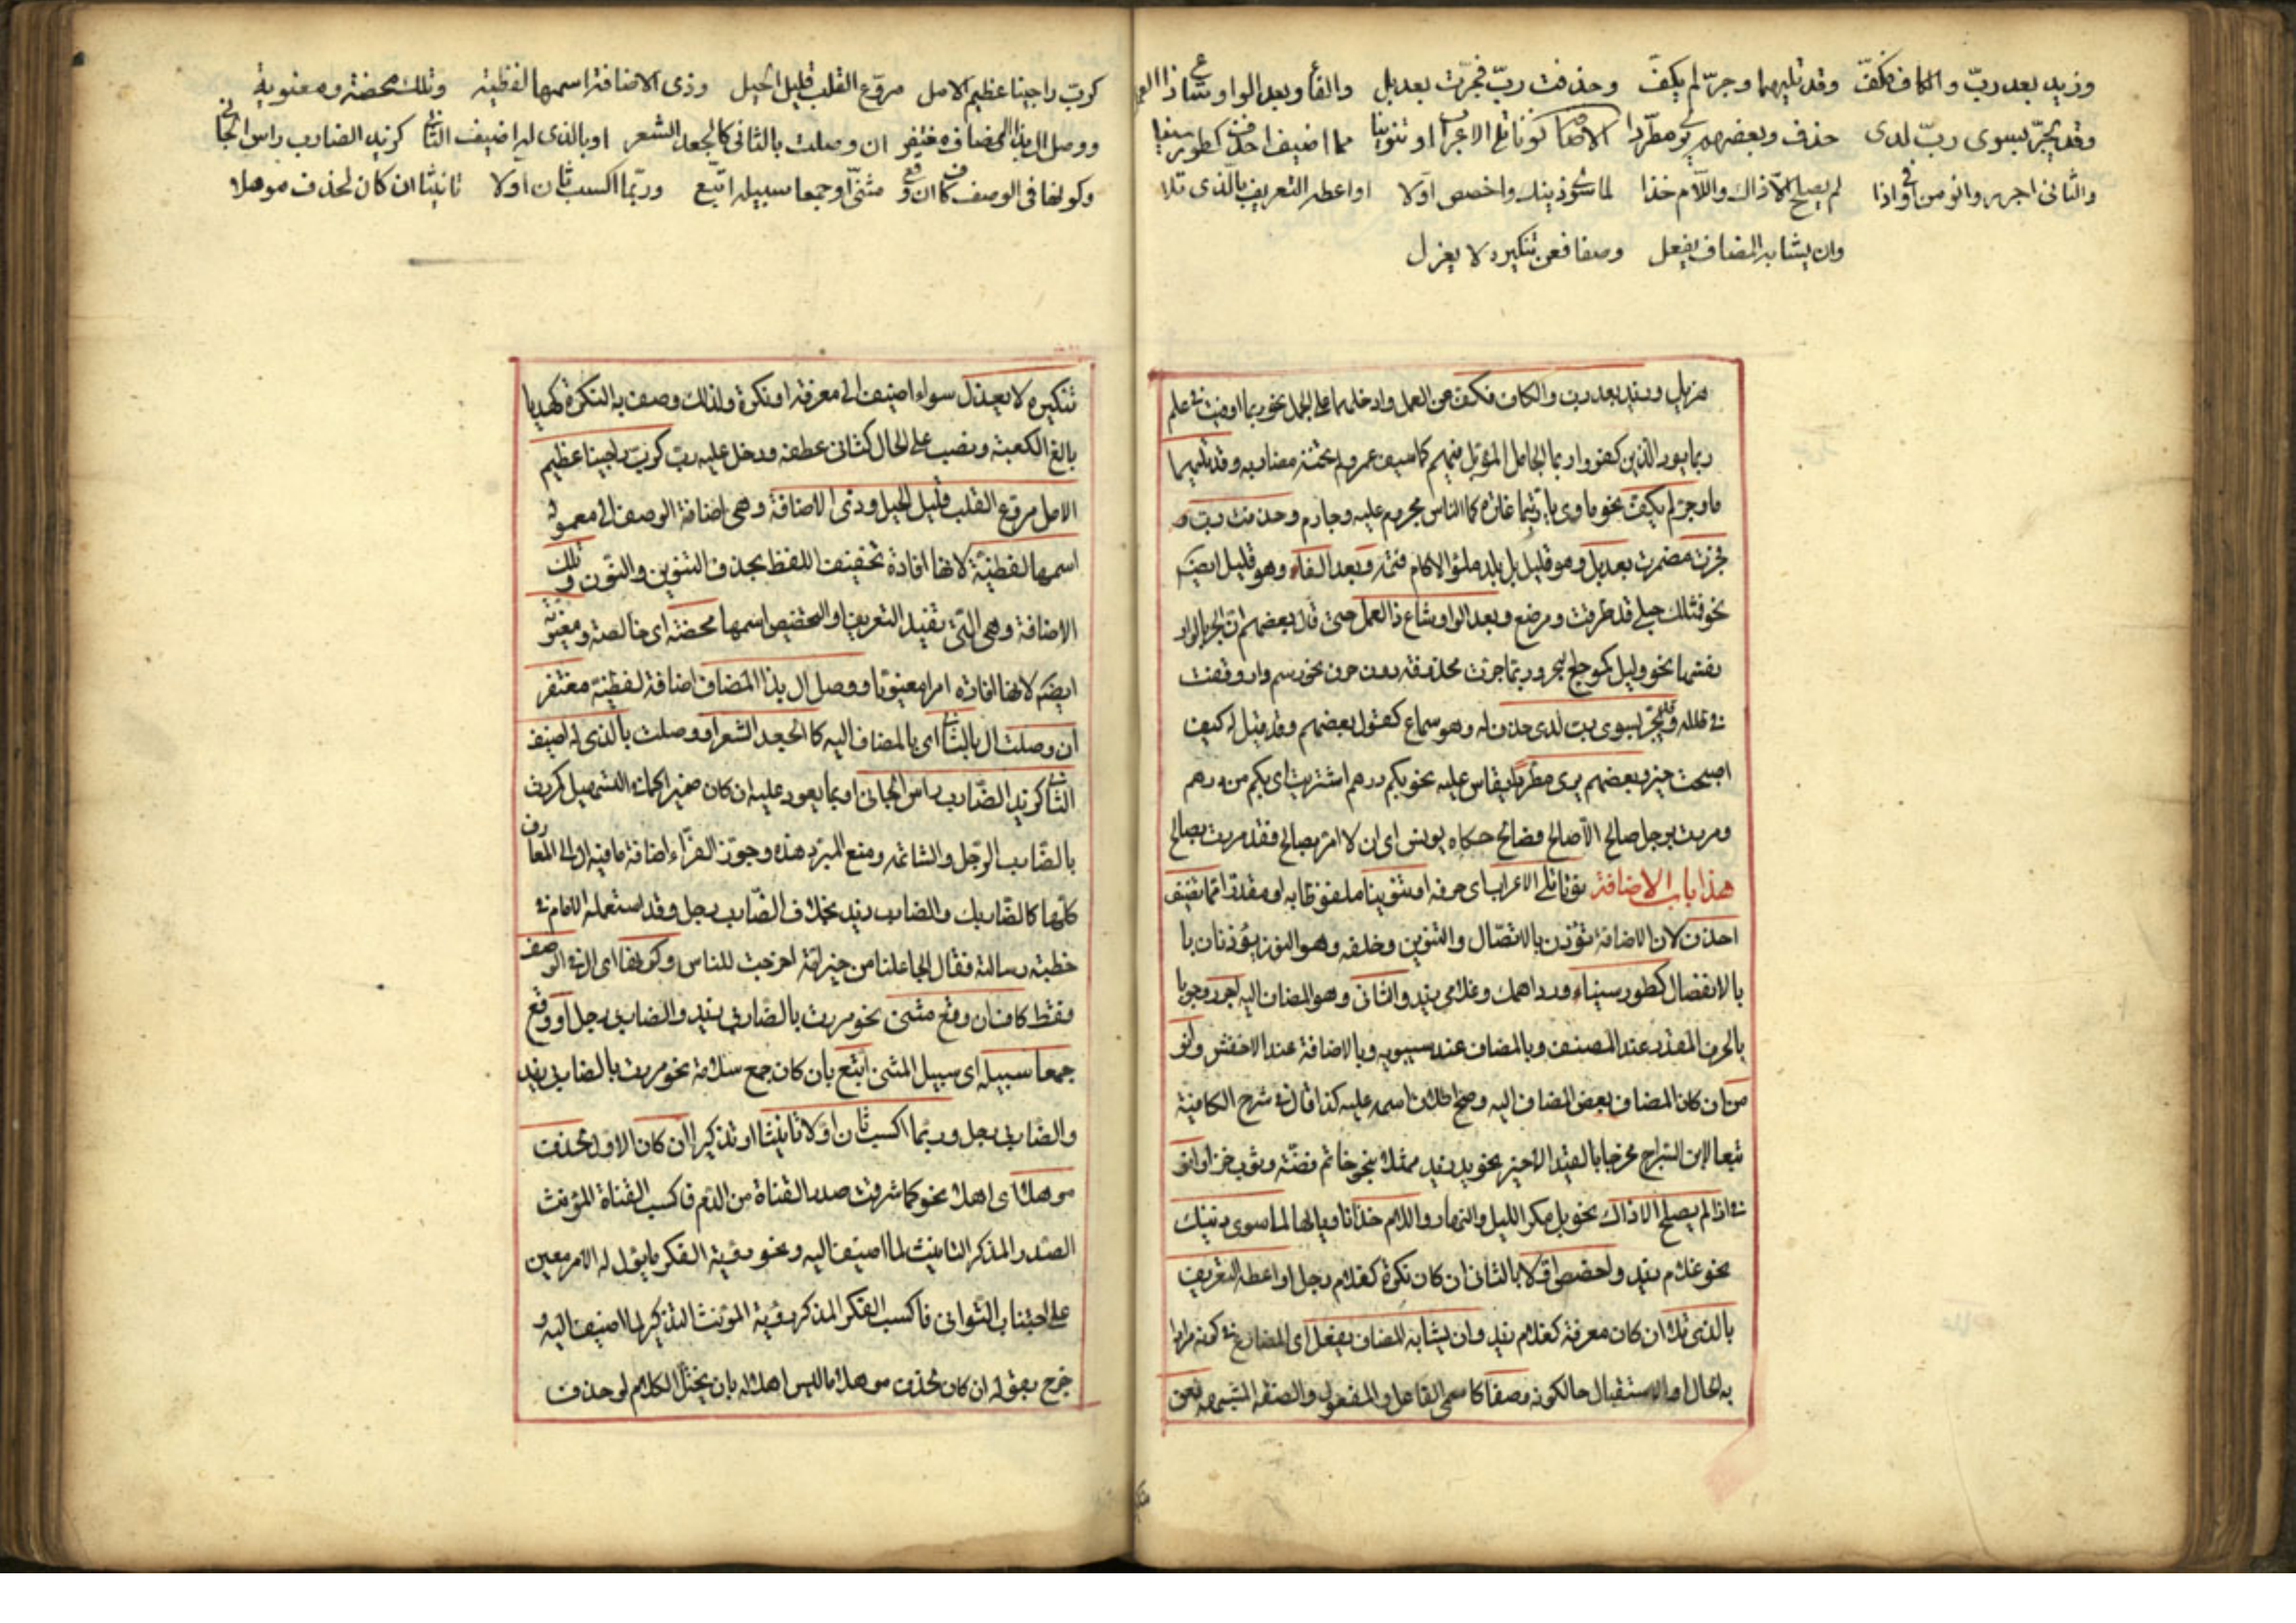 وزيد بعد ربّ والكاف فكفّ وقد تليهما وجرّ لم يكفّ وحذفت ربّ فجرّت بعد بل والفا وبعد الواو شاع ذا العمل
وقد يجرّ بسوى ربّ لدى حذف وبعضهم يرى مطّردا الاضافة نونا تلي الاعراب او تنوينا مما اضيف احذف كطور سينا
والثاني اجرر وانو من او في اذا لم يصلح الّا ذاك واللّام خذا لما سوى ذينك واخصص اوّلا او اعطه التعريف بالّذي تلا
وان يشابه المضاف يفعل وصفا فعن تنكيره لا يعزل
مزيل وزيد بعد رب والكاف فكف عن العمل وادخلهما على الجمل نحو ربما اوفيت في علم
ربما يود الذين كفروا ربما الجامل المؤبل فيهم كما سيف عمرو لم تخنه مضاربه وقد تليهما
ما وجر لم يكف نحو ماوي يا ربتما غارة كما الناس مجروم عليه وجارم وحذفت رب و
فجرت مضمرة بعد بل وهو قليل بل بلد ملؤ الاكام قتمه وبعد الفاء وهو قليل ايضا
نحو فمثلك حبلى قد طرقت ومرضع وبعد الواو شاع ذا العمل حتى قال بعضهم ان الجر بالواو
نفسها نحو وليل كموج البحر وربما جرت محذوفة بدون حرف نحو رسم دار وقفت
في طلله وقد يجر بسوى رب لدى حذف له وهو سماع كقول بعضهم وقد قيل له كيف
اصبحت خير وبعضهم يرى مطردا يقاس عليه نحو بكم درهم اشتريت اى بكم من درهم
ومررت برجل صالح الا صالح فصالح حكاه يونس اى ان لا امر بصالح فقد مررت بصالح
هذا باب الاضافة نونا تلي الاعراب اى حرفه او تنوينا ملفوظا به او مقدرا مما تضيف
احذف لان الاضافة تؤذن بالاتصال والتنوين وخلفه وهو النون يؤذنان با
بالانفصال كطور سيناء ودراهمك وغلامي زيد والثانى وهو المضاف اليه اجرر وجوبا
بالحرف المقدر عند المصنف وبالمضاف عند سيبويه وبالاضافة عند الاخفش وانو
من ان كان المضاف بعض المضاف اليه وصح اطلاق اسمه عليه كذا قال في شرح الكافية
تبعا لابن السراج مخرجا بالقيد الاخير نحو يد زيد ممثلا بنحو خاتم فضة وثوب خز او انو
في اذا لم يصلح الا ذاك نحو بل مكر الليل والنهار واللام خذا ناويا لها لما سوى ذينك
نحو غلام زيد واخصص اوّلا بالثانى ان كان نكرة كغلام رجل او اعطه التعريف
بالذى تلا ان كان معرفة كغلام زيد وان يشابه المضاف يفعل اى المضارع في كونه مرادا
به الحال او الاستقبال حالكونه وصفا كاسمى الفاعل والمفعول والصفة المشبهة فعن
كربّ راجينا عظيم الامل مروّع القلب قليل الحيل وذى الاضافة اسمها لفظية وتلك محضة ومعنوية
ووصل ال بذا المضاف مغتفر ان وصلت بالثانى كالجعد الشعر او بالذى له اضيف الثانى كزيد الضارب راس الجانى
وكونها فى الوصف كاف ان وقع مثنّى او جمعا سبيله اتّبع وربّما اكسب ثان اوّلا تانيثا ان كان لحذف موهلا
تنكيره لا يعزل سواء اضيف الى معرفة او نكرة ولذلك وصف به النكرة كهديا
بالغ الكعبة ونصب على الحال كثانى عطفه ودخل عليه رب كربّ راجينا عظيم
الامل مروع القلب قليل الحيل وذى الاضافة وهى اضافة الوصف الى معموله
اسمها لفظية لانها افادة تخفيف اللفظ بحذف التنوين والنون وتلك
الاضافة وهى التى تفيد التعريف او التخصيص اسمها محضة اى خالصة ومعنوية
ايضا لانها افادة امرا معنويا ووصل ال بذا المضاف اضافة لفظية مغتفر
ان وصلت ال بالثانى اى بالمضاف اليه كالجعد الشعر او وصلت بالذى له اضيف
الثانى كزيد الضّارب راس الجانى او بما يعود عليه ان كان ضميرا كما فى التسهيل كمررت
بالضّارب الرّجل والشاتمه ومنع المبرد هذه وجوّز الفرّاء اضافة ما فيه ال الى المعارف
كلّها كالضّاربك والضارب زيد بخلاف الضّارب رجل وقد استعمله الامام فى
خطبة رسالته فقال الجاعلنا من خير امّة اخرجت للناس وكونها اى ال فى الوصف
فقط كاف ان وقع مثنى نحو مررت بالضّاربى زيد والضاربى رجل او وقع
جمعا سبيله اى سبيل المثنى اتبع بان كان جمع سلامة نحو مررت بالضاربى زيد
والضاربى رجل وربّما اكسب ثان اوّلا تانيثا او تذكيرا ان كان الاول لحذف
موهلا اى اهلا نحو كما شرقت صدر القناة من الدّم فاكسب القناة المؤنث
الصدر المذكر التانيث لما اضيف اليه ونحو رؤية الفكر ما يؤل له الامر معين
على اجتناب التّوانى فاكسب الفكر المذكر رؤية المؤنث التذكير لما اضيف اليه و
خرج بقوله ان كان لحذف موهلا ما ليس اهلا له بان يختلّ الكلام لو حذف